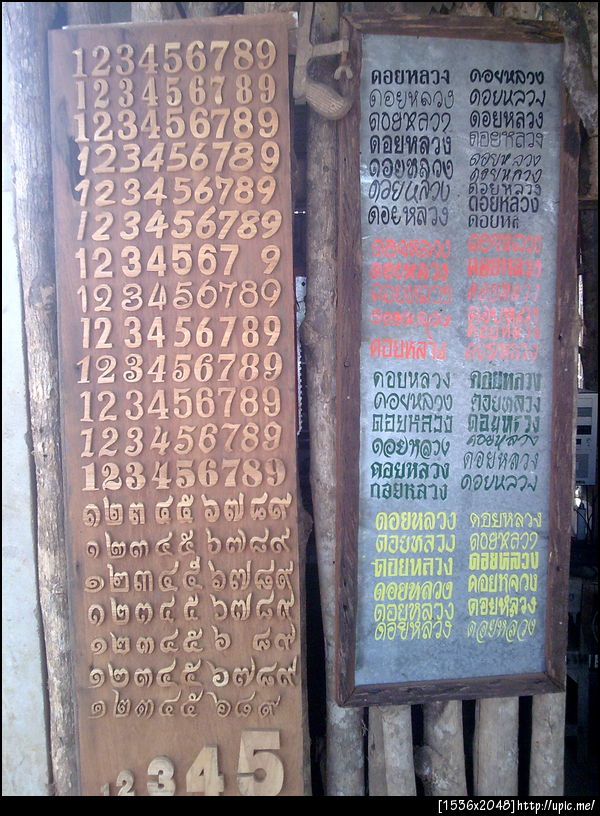 123456789
123456789
123456789
123456789
123456789
123456789
1234567 9
123456789
123456789
123456789
123456789
123456789
123456789
๑๒๓๔๕๖๗๘๙
๑๒๓๔๕๖๗๘๙
๑๒๓๔๕๖๗๘๙
๑๒๓๔๕๖๗๘๙
๑๒๓๔๕๖ ๘๙
๑๒๓๔๕๖๗๘๙
๑๒๓๔๕๖๘๙
2345
ดอยหลวง
ดอยหลวง
ดอยหลวง
ดอยหลวง
ดอยหลวง
ดอยหลวง
ดอยหลวง
ดอยหลวง
ดอยหลวง
ดอยหลวง
ดอยหลวง
ดอยหลวง
ดอยหลวง
ดอยหลวง
ดอยหลวง
ดอยหลวง
ดอยหลวง
ดอยหลวง
ดอยหลวง
ดอยหลวง
ดอยหลวง
ดอยหลวง
ดอยหลวง
ดอยหลวง
ดอยหลวง
ดอยหลวง
ดอยหลวง
ดอยหลวง
ดอยหลวง
ดอยหลวง
ดอยหลวง
ดอยหลวง
ดอยหล
ดอยหลวง
ดอยหลวง
ดอยหลวง
ดอยหลวง
ดอยหลวง
ดอยหลวง
ดอยหลวง
ดอยหลวง
ดอยหลวง
ดอยหลวง
ดอยหลวง
ดอยหลวง
ดอยหลวง
ดอยหลวง
ดอยหลวง
ดอยหลวง
ดอยหลวง
ดอยหลวง
[1536x2048]http://upic.me/